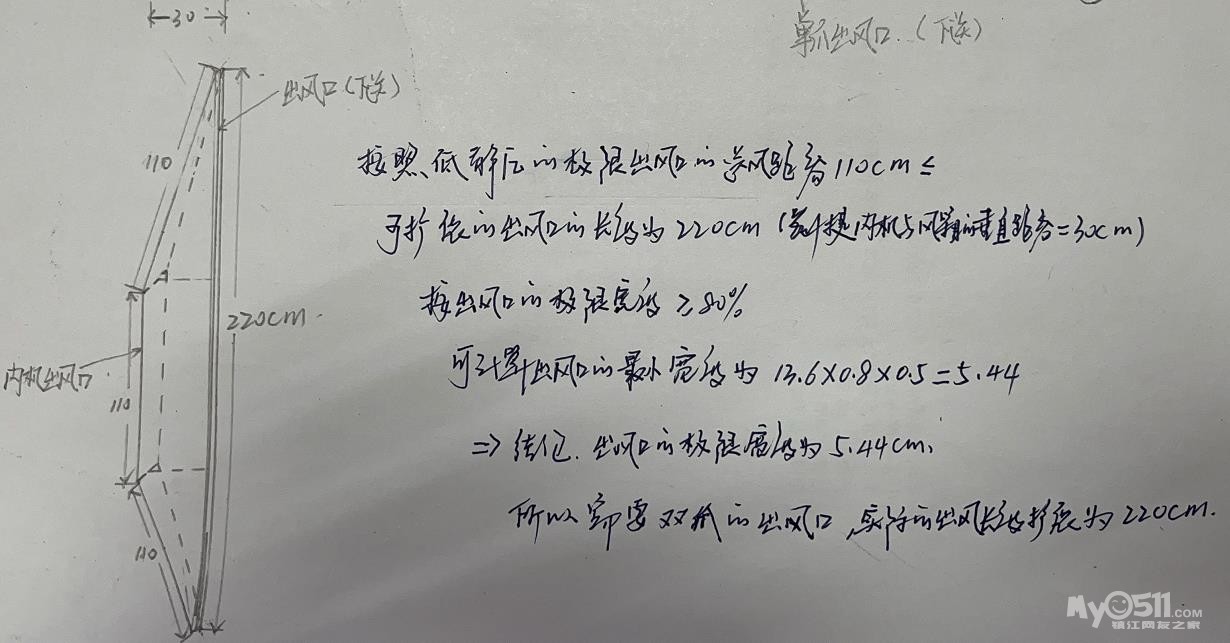 30
单爪出风口.(下送)
出风口(下送)
110
按照低静压的极限出风口的送风距离110cm≤
可扩张的出风口的长度为220cm(条件是内机与风箱的垂直距离=30cm)
按出风口的极限宽度≥80%
220cm.
可计算出风口的最小宽度为13.6×0.8×0.5=5.44
内机出风口
110
=>结论.出风口的极限宽度为5.44cm,
所以需要双爪的出风口,实际的出风长度扩展为220cm.
110
My0511.COM
镇江网友之家